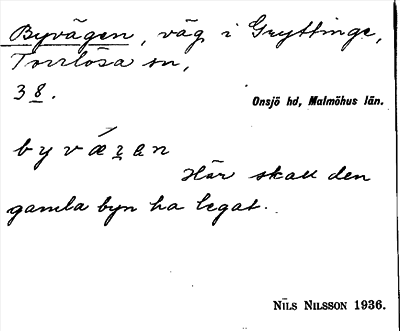 Byvägen, väg i Gryttinge,
Torrlösa sn,
38.
Onsjö hd, Malmöhus län.
byvǽʒan
Här skall den
gamla byn ha legat.
NILS NILSSON 1936.